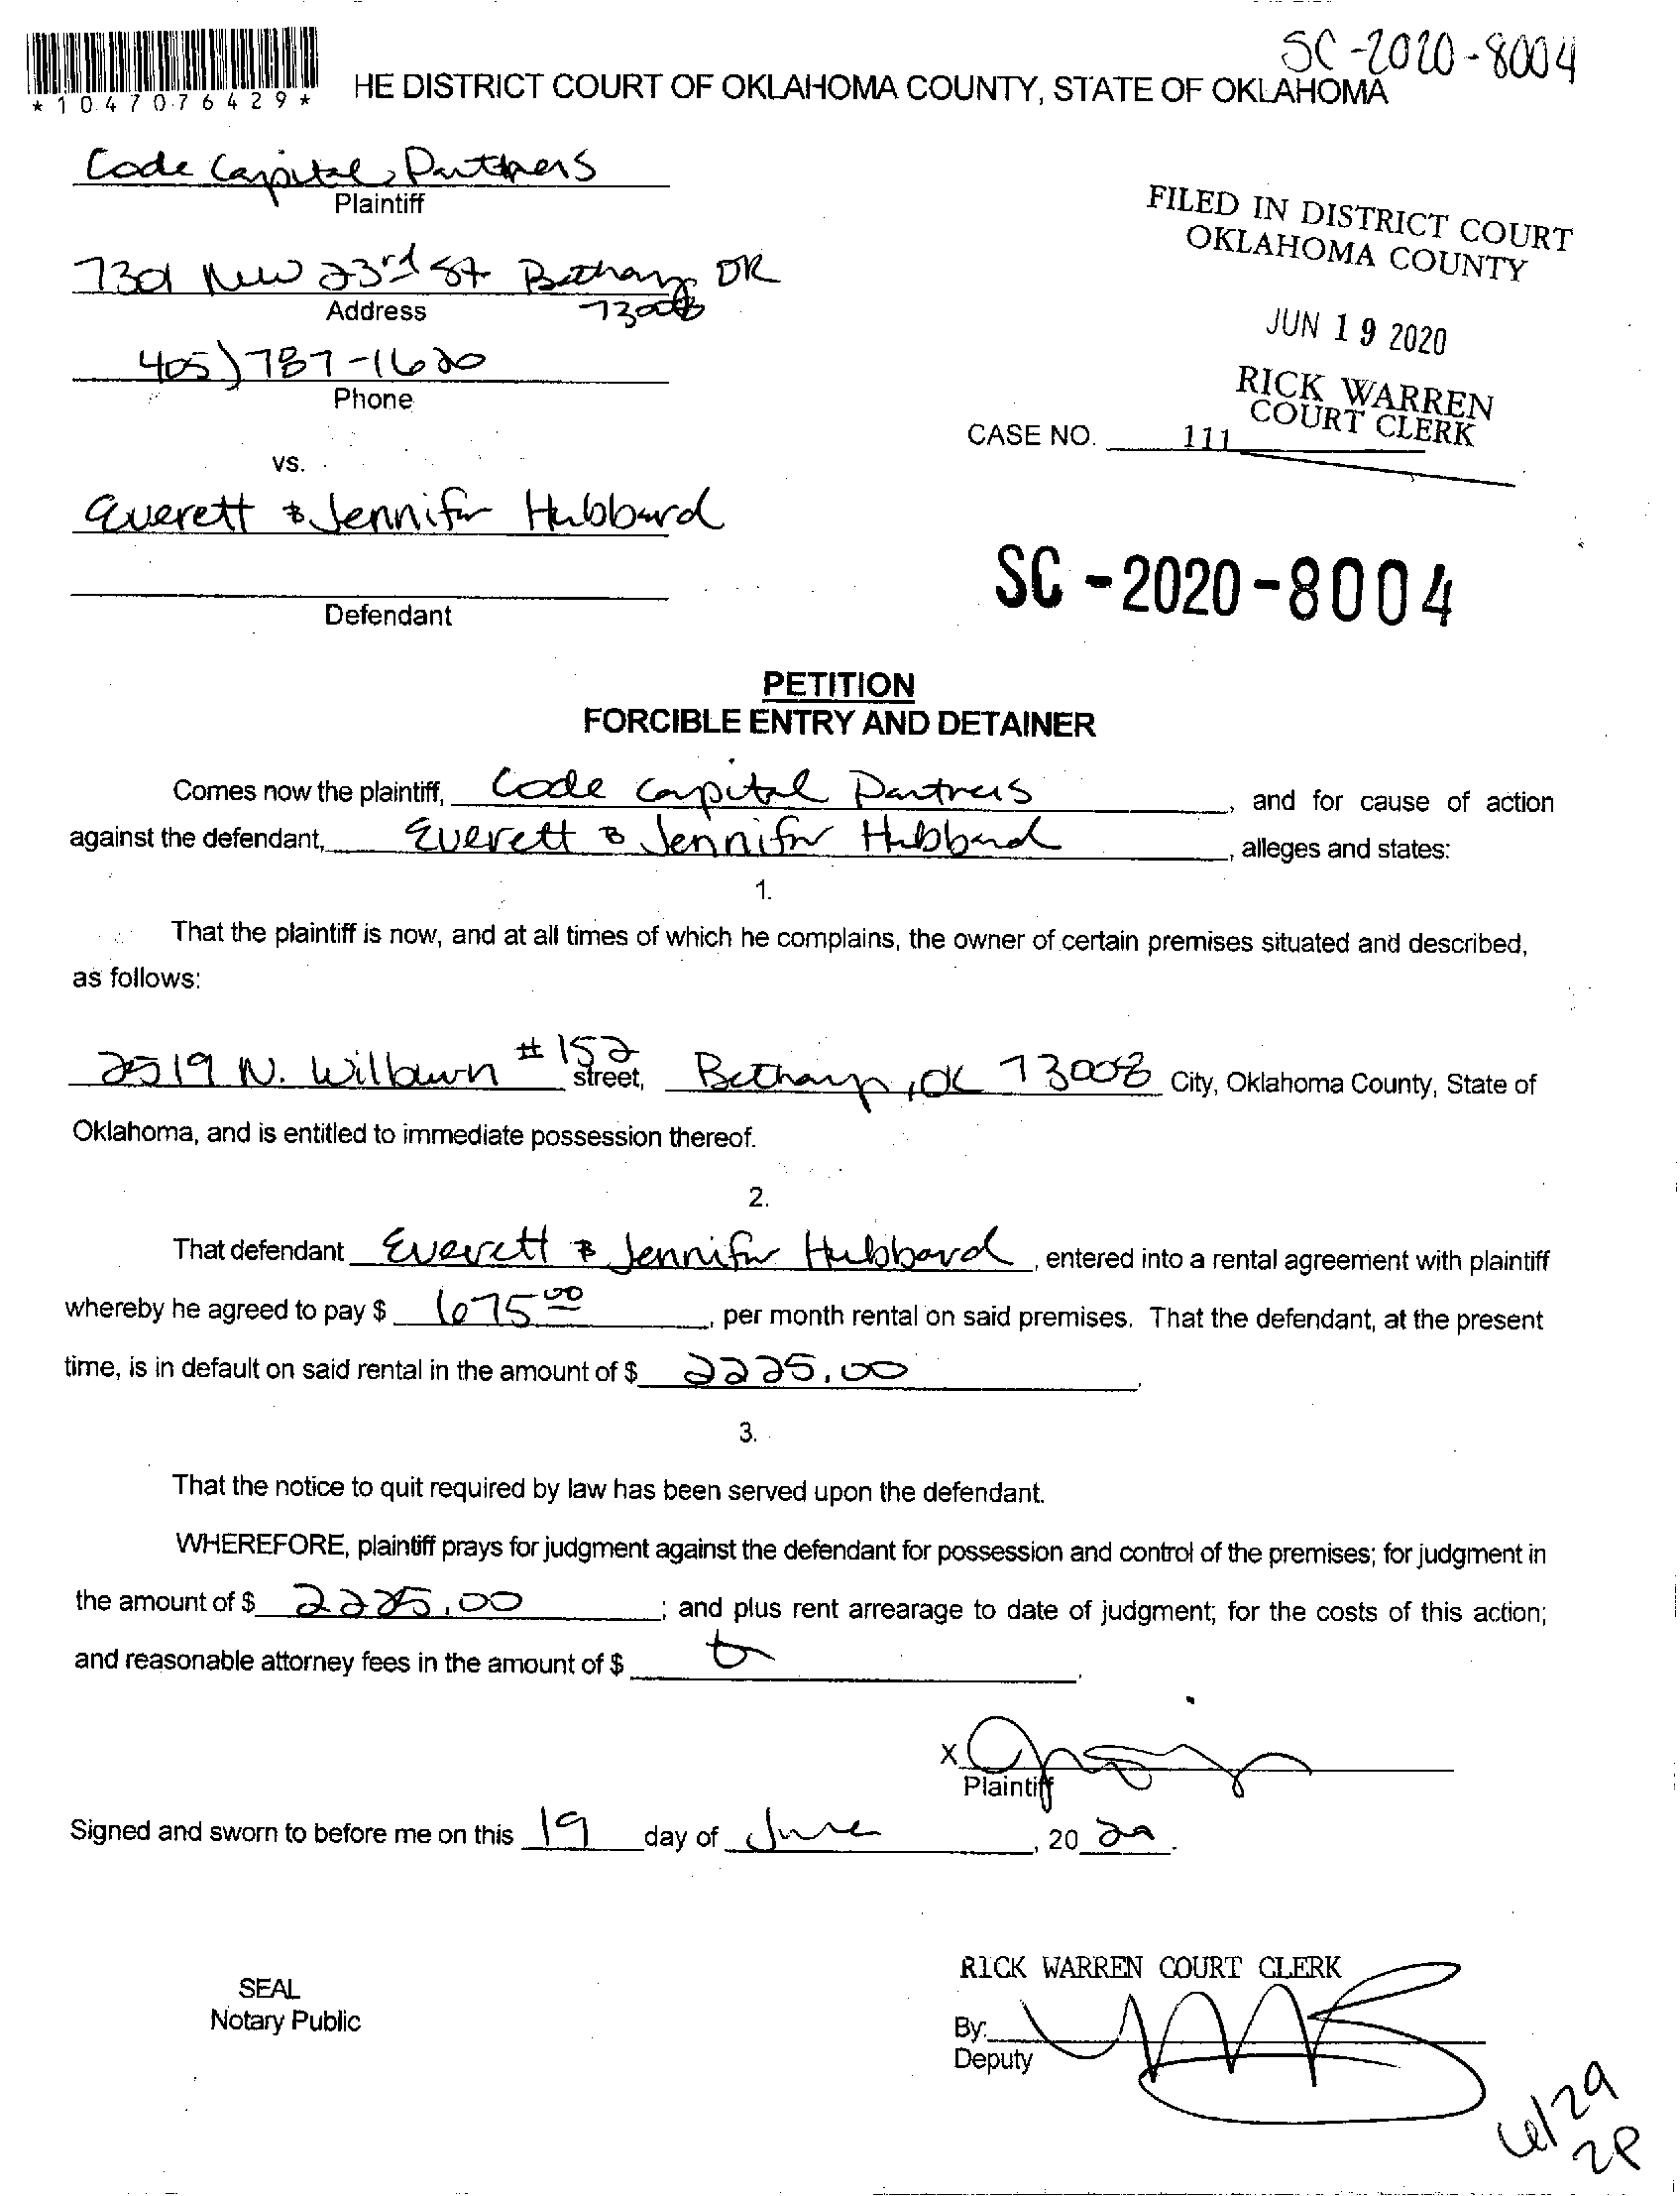 SC-2020-8004
*1047076429*
HE DISTRICT COURT OF OKLAHOMA COUNTY, STATE OF OKLAHOMA
Code Capital Partners
Plaintiff
7301 NW 23rd St Bethany OK
73008
Address
405) 787-1620
Phone
FILED IN DISTRICT COURT
OKLAHOMA COUNTY
JUN 19 2020
RICK WARREN
COURT CLERK
CASE NO. 111
vs.
Everett & Jennifer Hubbard
Defendant
SC-2020-8004
PETITION
FORCIBLE ENTRY AND DETAINER
Comes now the plaintiff, Code Capital Partners, and for cause of action
against the defendant, Everett & Jennifer Hubbard, alleges and states:
1.
That the plaintiff is now, and at all times of which he complains, the owner of certain premises situated and described,
as follows:
2519 N. Wilburn #152 street, Bethany, OK 73008 City, Oklahoma County, State of
Oklahoma, and is entitled to immediate possession thereof.
2.
That defendant Everett & Jennifer Hubbard, entered into a rental agreement with plaintiff
whereby he agreed to pay $ 675 00, per month rental on said premises. That the defendant, at the present
time, is in default on said rental in the amount of $ 2225.00.
3.
That the notice to quit required by law has been served upon the defendant.
WHEREFORE, plaintiff prays for judgment against the defendant for possession and control of the premises; for judgment in
the amount of $ 2225.00; and plus rent arrearage to date of judgment; for the costs of this action;
and reasonable attorney fees in the amount of $
X
Plaintiff
Signed and sworn to before me on this 19 day of June, 20 20.
RICK WARREN COURT CLERK
SEAL
Notary Public
By:
Deputy
6/29
2P